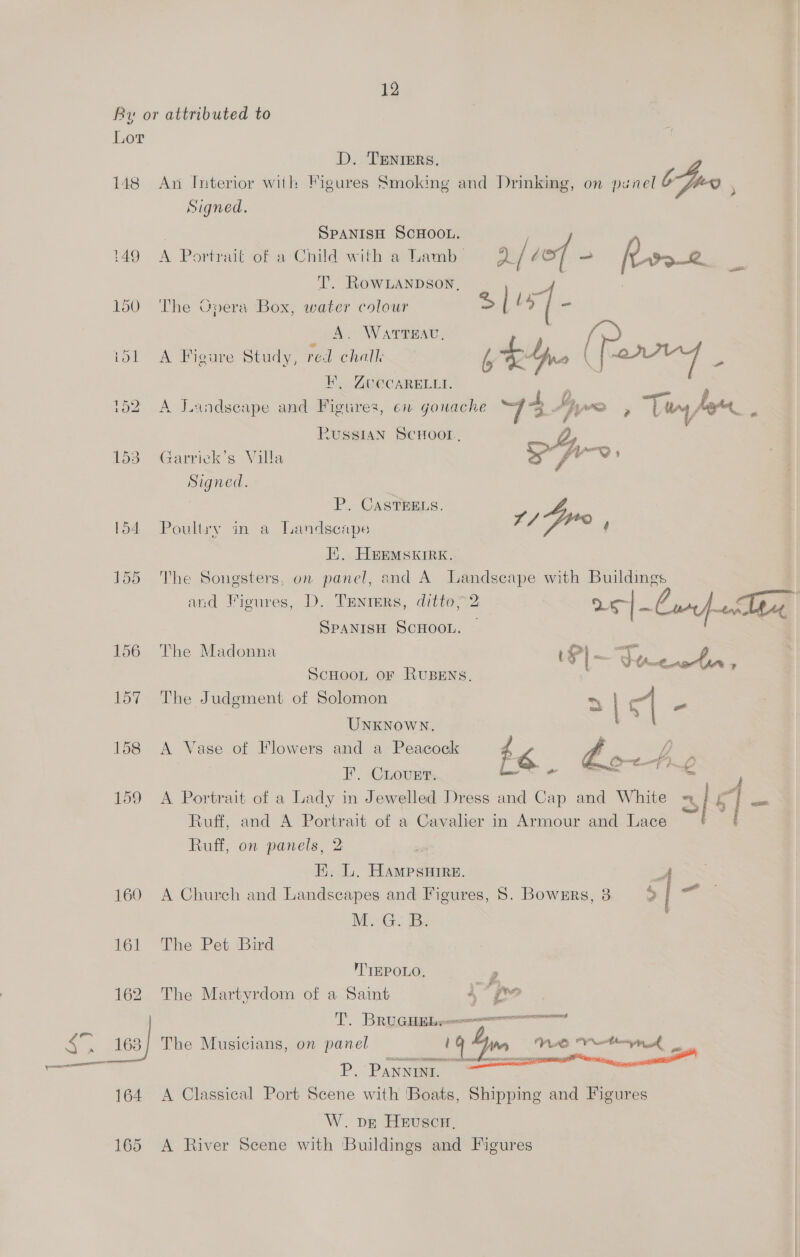 12
By or attributed to
Lot
D. Teniers.
148 An Interior with Figures Smoking and Drinking, on panel 6 gns
Signed.
Spanish School.
149 A Portrait of a Child with a Lamb 2/10/- Rose
T. Rowlandson.
150 The Opera Box, water colour 3/15/-
A. Watteau.
151 A Figure Study, red chalk gns (Parry
F. Zuccarelli.
152 A Landscape and Figures, en gouache gns, Taylor.
Russian School.
153 Garrick's Villa 8 gns
Signed.
P. Casteels.
154 Poultry in a Landscape gns
E. Heemskirk.
155 The Songsters, on panel, and A Landscape with Buildings
and Figures, D. Teniers, ditto, 2 25/- Carpenter
Spanish School.
156 The Madonna 18/-
School of Rubens.
157 The Judgment of Solomon 2/5/-
Unknown.
158 A Vase of Flowers and a Peacock
F. Clouet.
159 A Portrait of a Lady in Jewelled Dress and Cap and White 3/5/-
Ruff, and A Portrait of a Cavalier in Armour and Lace
Ruff, on panels, 2
E. L. Hampshire.
160 A Church and Landscapes and Figures, S. Bowers, 3 5/-
M. G. B.
161 The Pet Bird
Tiepolo.
162 The Martyrdom of a Saint 4 gns
T. Brughel.
163 The Musicians, on panel 19 gns
P. Pannini.
164 A Classical Port Scene with Boats, Shipping and Figures
W. de Heusch.
165 A River Scene with Buildings and Figures